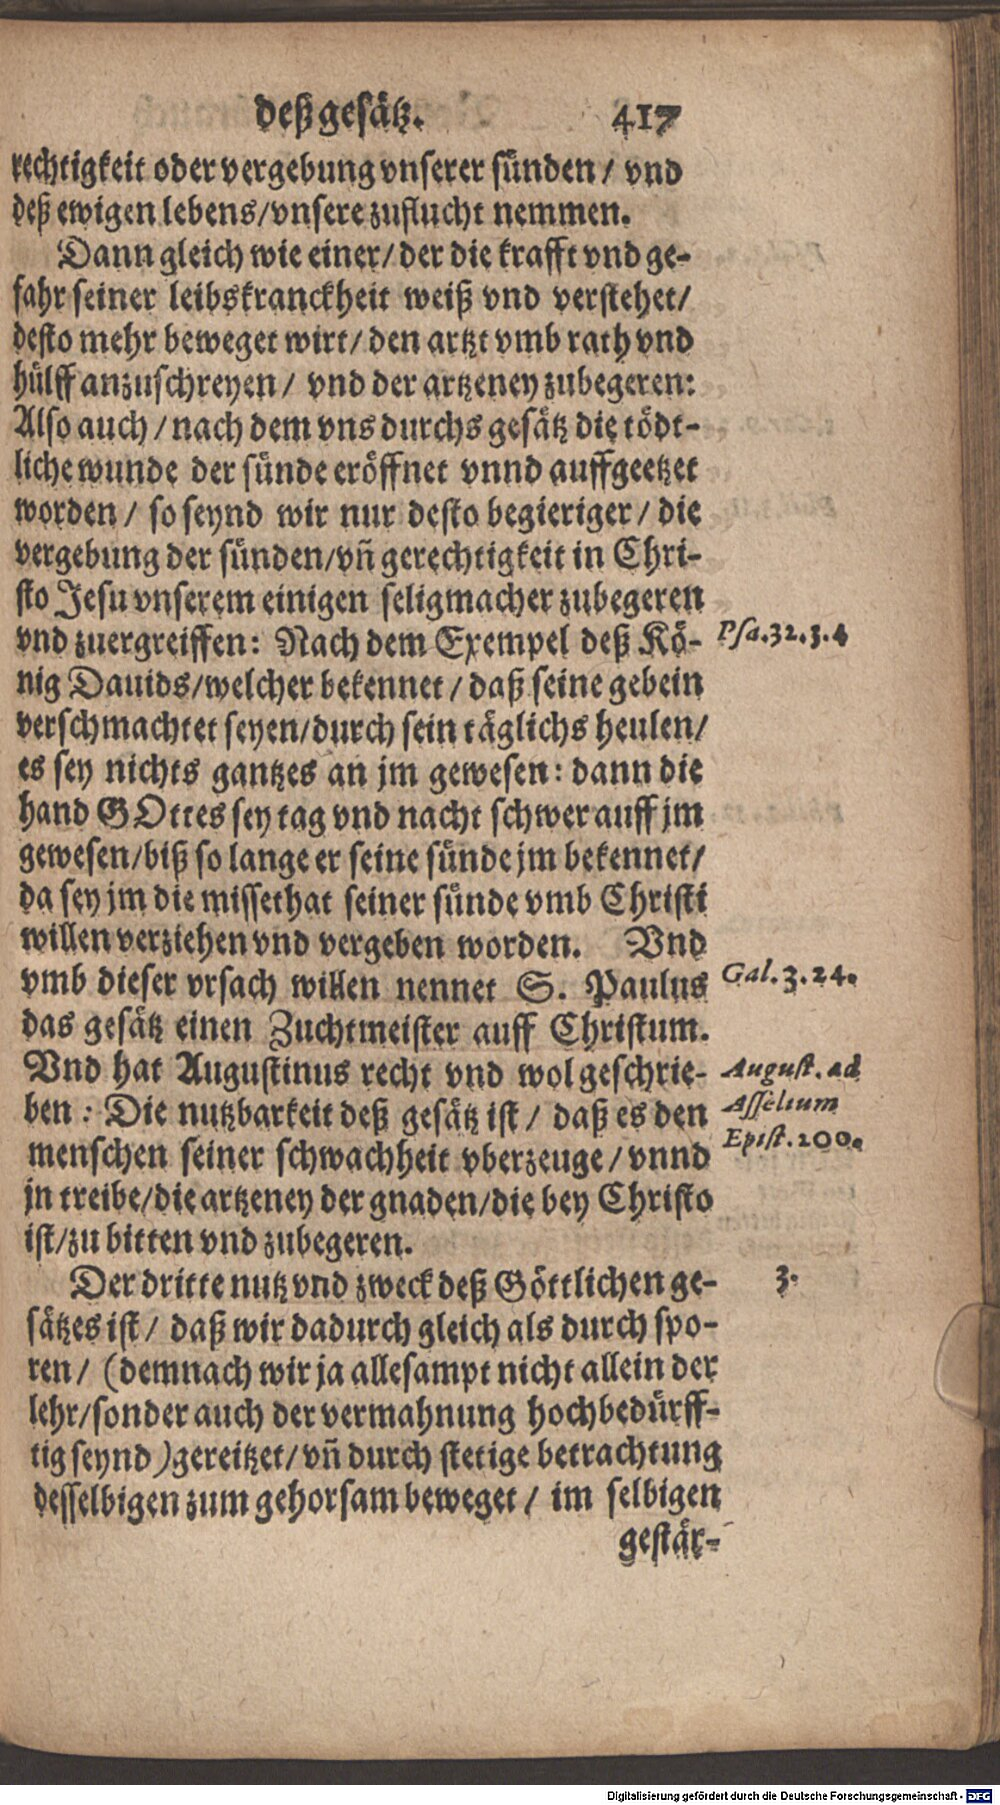 deß gesätz. 417
rechtigkeit oder vergebung vnserer sünden / vnd
deß ewigen lebens/vnsere zuflucht nemmen.
Dann gleich wie einer/ der die krafft vnd ge-
fahr seiner leibskranckheit weiß vnd verstehet/
desto mehr beweget wirt/ den artzt vmb rath vnd
hülff anzuschreyen / vnd der artzeney zubegeren:
Also auch / nach dem vns durchs gesätz die tödt-
liche wunde der sünde eröffnet vnnd auffgeetzet
worden / so seynd wir nur desto begieriger / die
vergebung der sünden/vñ gerechtigkeit in Chri-
sto Jesu vnserem einigen seligmacher zubegeren
vnd zuergreiffen: Nach dem Exempel deß Kö- Psa.32.3.4
nig Dauids/welcher bekennet / daß seine gebein
verschmachtet seyen/durch sein täglichs heulen/
es sey nichts gantzes an jm gewesen: dann die
hand GOttes sey tag vnd nacht schwer auff jm
gewesen/biß so lange er seine sünde jm bekennet/
da sey jm die missethat seiner sünde vmb Christi
willen verziehen vnd vergeben worden. Vnd
vmb dieser vrsach willen nennet S. Paulus Gal.3.24.
das gesätz einen Zuchtmeister auff Christum.
Vnd hat Augustinus recht vnd wol geschrie- August. ad
ben : Die nutzbarkeit deß gesätz ist / daß es den Asselium
menschen seiner schwachheit vberzeuge / vnnd Epist.200.
jn treibe/die artzeney der gnaden/die bey Christo
ist/zu bitten vnd zubegeren.
Der dritte nutz vnd zweck deß Göttlichen ge- 3.
sätzes ist / daß wir dadurch gleich als durch spo-
ren / (demnach wir ja allesampt nicht allein der
lehr/sonder auch der vermahnung hochbedürff-
tig seynd )gereitzet/ vñ durch stetige betrachtung
desselbigen zum gehorsam beweget / im selbigen
gestär-
Digitalisierung gefördert durch die Deutsche Forschungsgemeinschaft - DFG